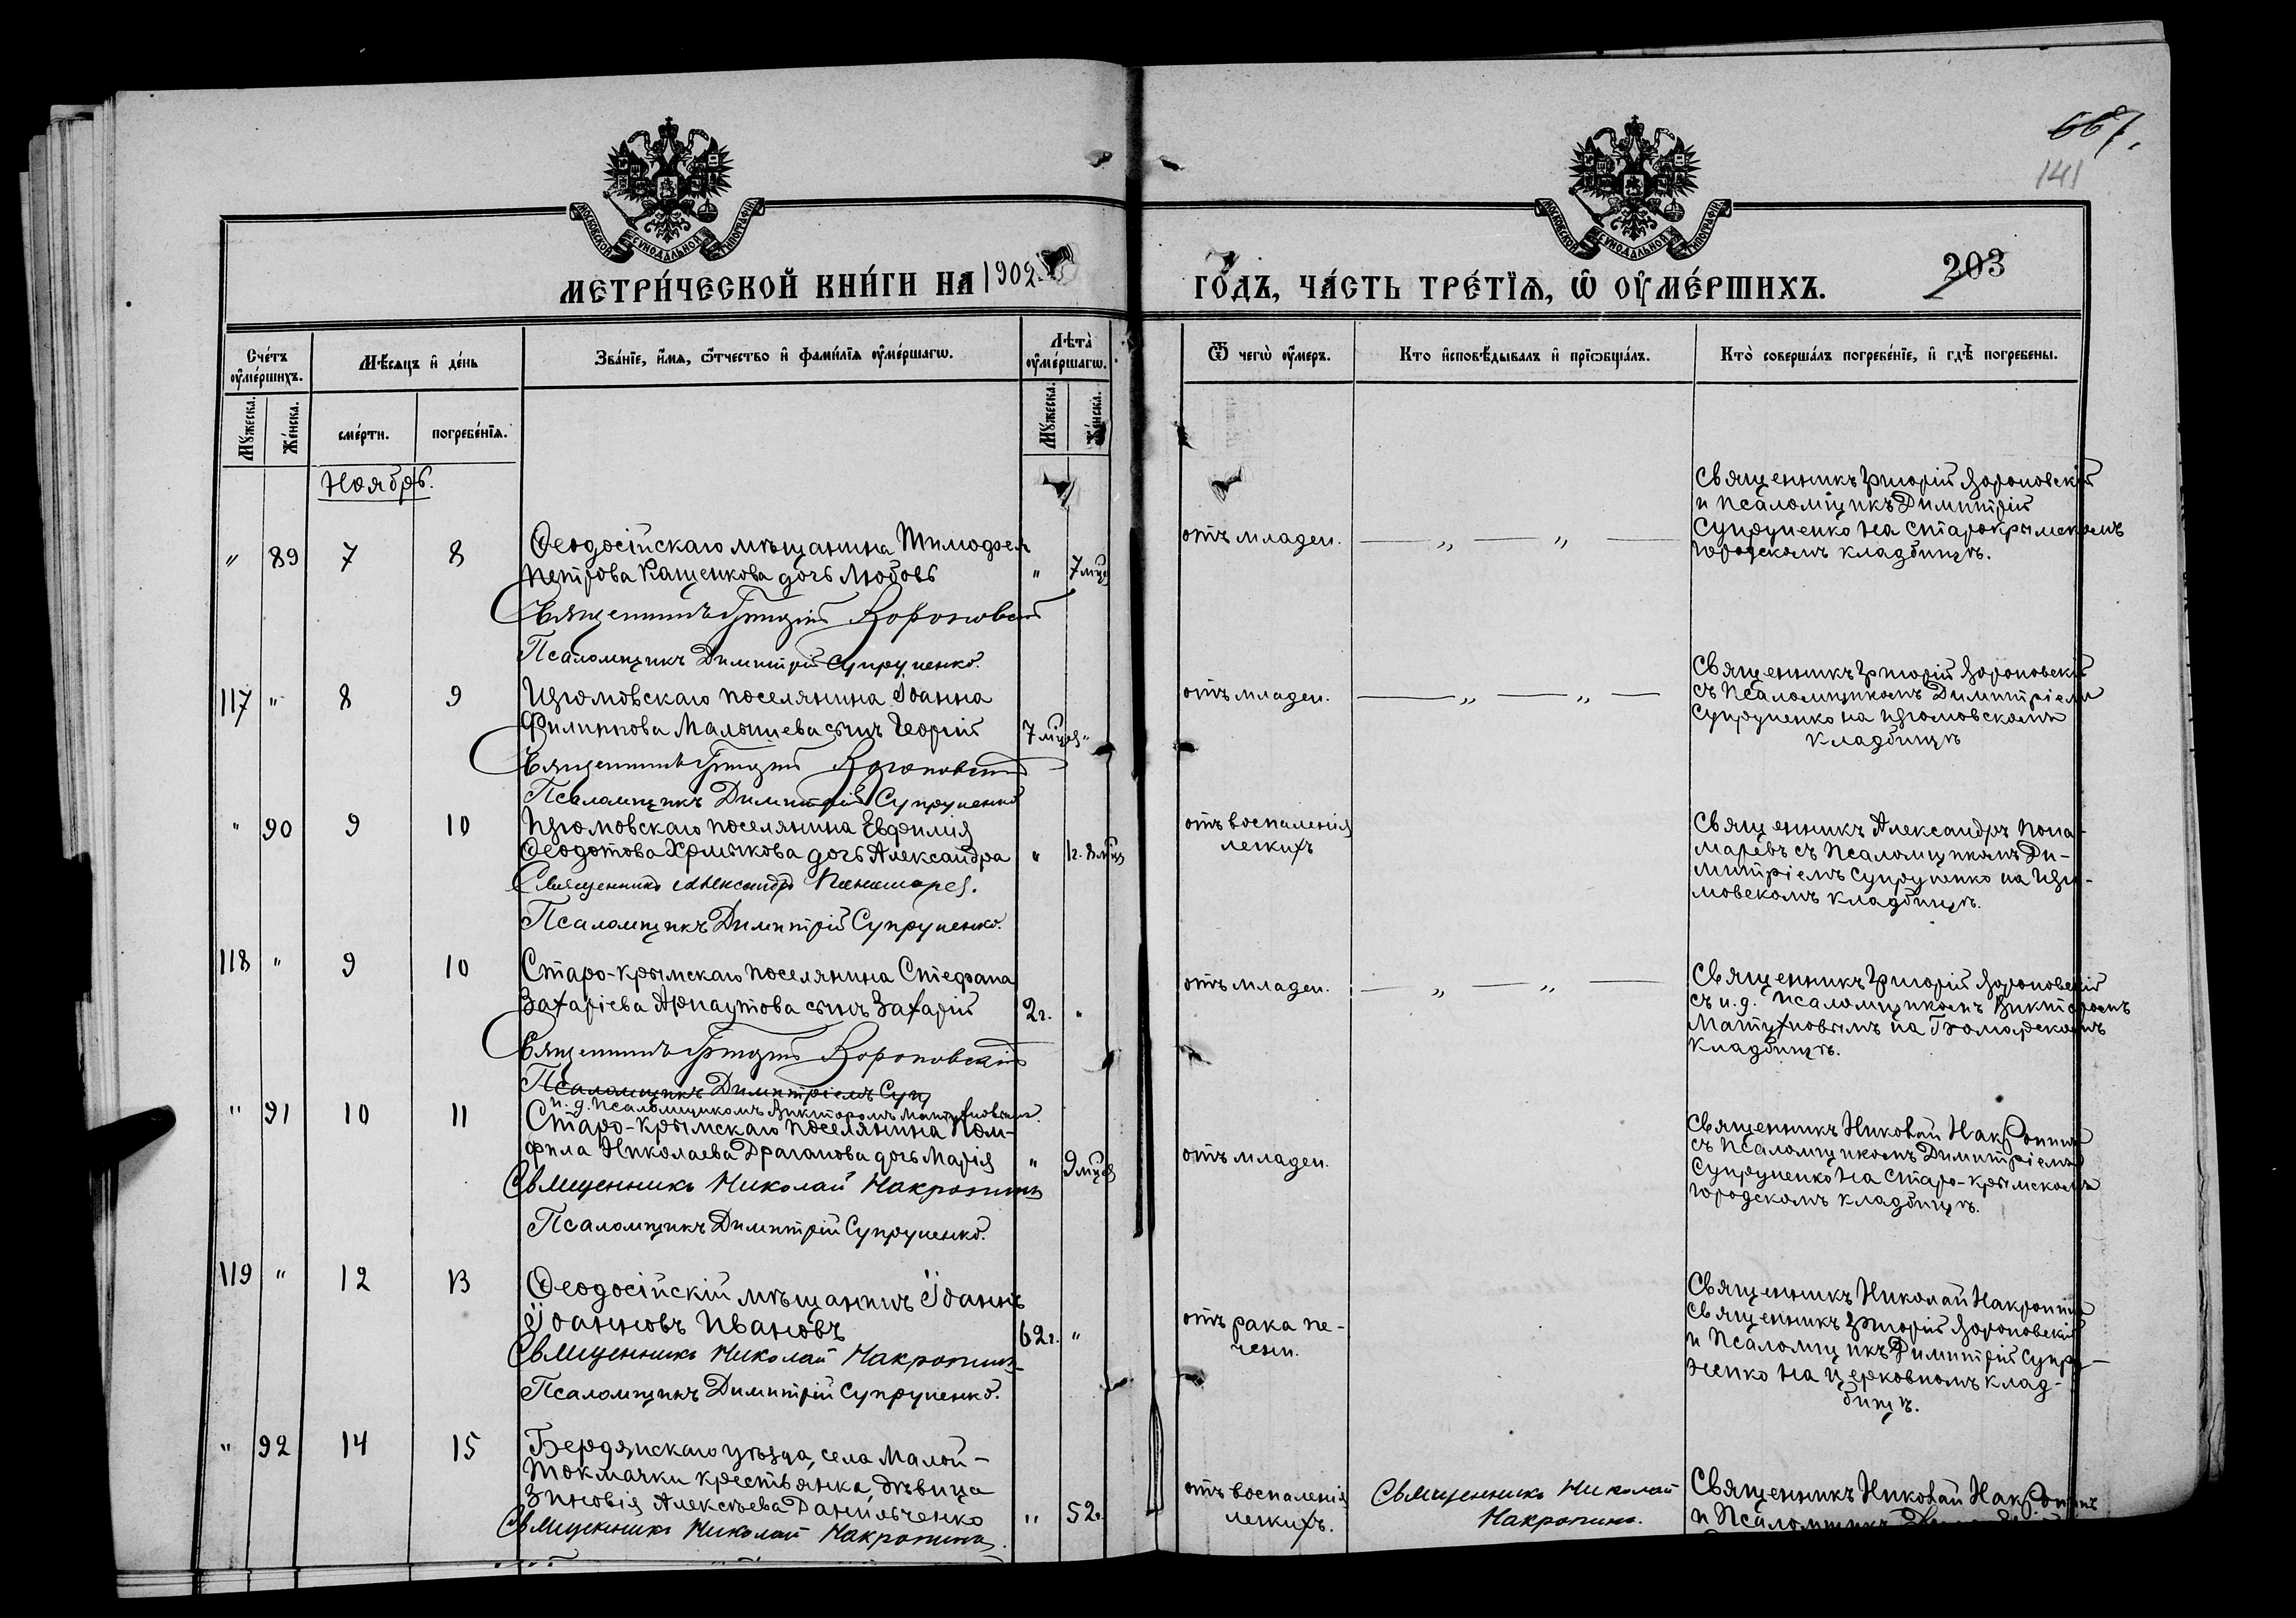 667.
141
МОСКОВСКОЙ СУНОДАЛЬНОЙ ТИПОГРАФІИ
МОСКОВСКОЙ СУНОДАЛЬНОЙ ТИПОГРАФІИ
МЕТРИ́ЧЕСКОЙ КНИ́ГИ НА 1902
ГО́ДЪ, ЧА́СТЬ ТРЕ́ТЇѦ, Ѿ ОУ҆МЕ́РШИХЪ.
203
Сче́тъ оу҆ме́ршихъ.
Мѣ́сѧцъ и҆ де́нь
Зва́нїе, и҆́мѧ, ѻ҆́тчество и҆ фами́лїѧ оу҆ме́ршагѡ.
Лѣта̀ оу҆ме́ршагѡ.
Ѿ чегѡ̀ оу҆́меръ.
Кто̀ и҆сповѣ́дывалъ и҆ прїѡбща́лъ.
Кто̀ соверша́лъ погребе́нїе, и҆ гдѣ̀ погребены.
Мꙋ́жеска.
Же́нска.
сме́рти.
погребе́нїѧ.
Мꙋ́жеска.
Же́нска.
Ноябрь.
" 89 7 8
Ѳеодосійскаго мѣщанина Тимоѳея
Петрова Кащенкова дочь Любовь
" 7 мцв
Священникъ Григорій Вороновскій
Псаломщикъ Димитрій Супруненко.
отъ младен.
— „ — „ —
Священникъ Григорій Вороновскій
и псаломщикъ Димитрій
Супруненко на Старокрымскомъ
городскомъ кладбищѣ.
117 " 8 9
Изюмовскаго поселянина Іоанна
Филиппова Малышева сынъ Георгій
7 мцев "
Священникъ Григорій Вороновскій
Псаломщикъ Димитрій Супруненко
отъ младен.
— „ — „ —
Священникъ Григорій Вороновскій
съ псаломщикомъ Димитріемъ
Супруненко на Изюмовскомъ
кладбищѣ
" 90 9 10
Изюмовскаго поселянина Евфимія
Ѳеодотова Хрмыкова дочь Александра
" 1г. 8 мцв
Священникъ Александръ Понамарев.
Псаломщикъ Димитрій Супруненко.
отъ воспаленія
легкихъ
Священникъ Александръ Пона-
маревъ съ псаломщикомъ Ди-
митріемъ Супруненко на Изю-
мовскомъ кладбищѣ.
118 " 9 10
Старо-Крымскаго поселянина Стефана
Захаріева Арнаутова сынъ Захарій
2г. "
Священникъ Григорій Вороновскій
Псаломщикъ Димитріемъ Суп
и. д. псаломщикомъ Викторомъ Матухновымъ.
отъ младен.
— „ — „ —
Священникъ Григорій Вороновскій
съ и. д. псаломщикомъ Викторомъ
Матухновымъ на
кладбищѣ.
" 91 10 11
Старо-Крымскаго поселянина Пам-
фила Николаева Драганова дочь Марія
" 9 мцев
Священникъ Николай Накропинъ
Псаломщикъ Димитрій Супруненко.
отъ младен.
Священникъ Николай Накропинъ
съ псаломщикомъ Димитріемъ
Супруненко на Старо-Крымскомъ
городскомъ кладбищѣ.
119 " 12 13
Ѳеодосійскій мѣщанинъ Іоаннъ
Іоанновъ Ивановъ
62г. "
Священникъ Николай Накропинъ
Псаломщикъ Димитрій Супруненко.
отъ рака пе-
чени.
Священникъ Николай Накропинъ
Священникъ Григорій Вороновскій
и псаломщикъ Димитрій Супру-
ненко на церковномъ клад-
бищѣ.
" 92 14 15
Бердянскаго уѣзда, села Малой-
Токмачки крестьянка, дѣвица
Зиновія Алексѣева Данильченко
" 52г.
Священникъ Николай Накропинъ.
отъ воспаленія
легкихъ.
Священникъ Николай
Накропинъ.
Священникъ Николай Накропинъ
и псаломщикъ